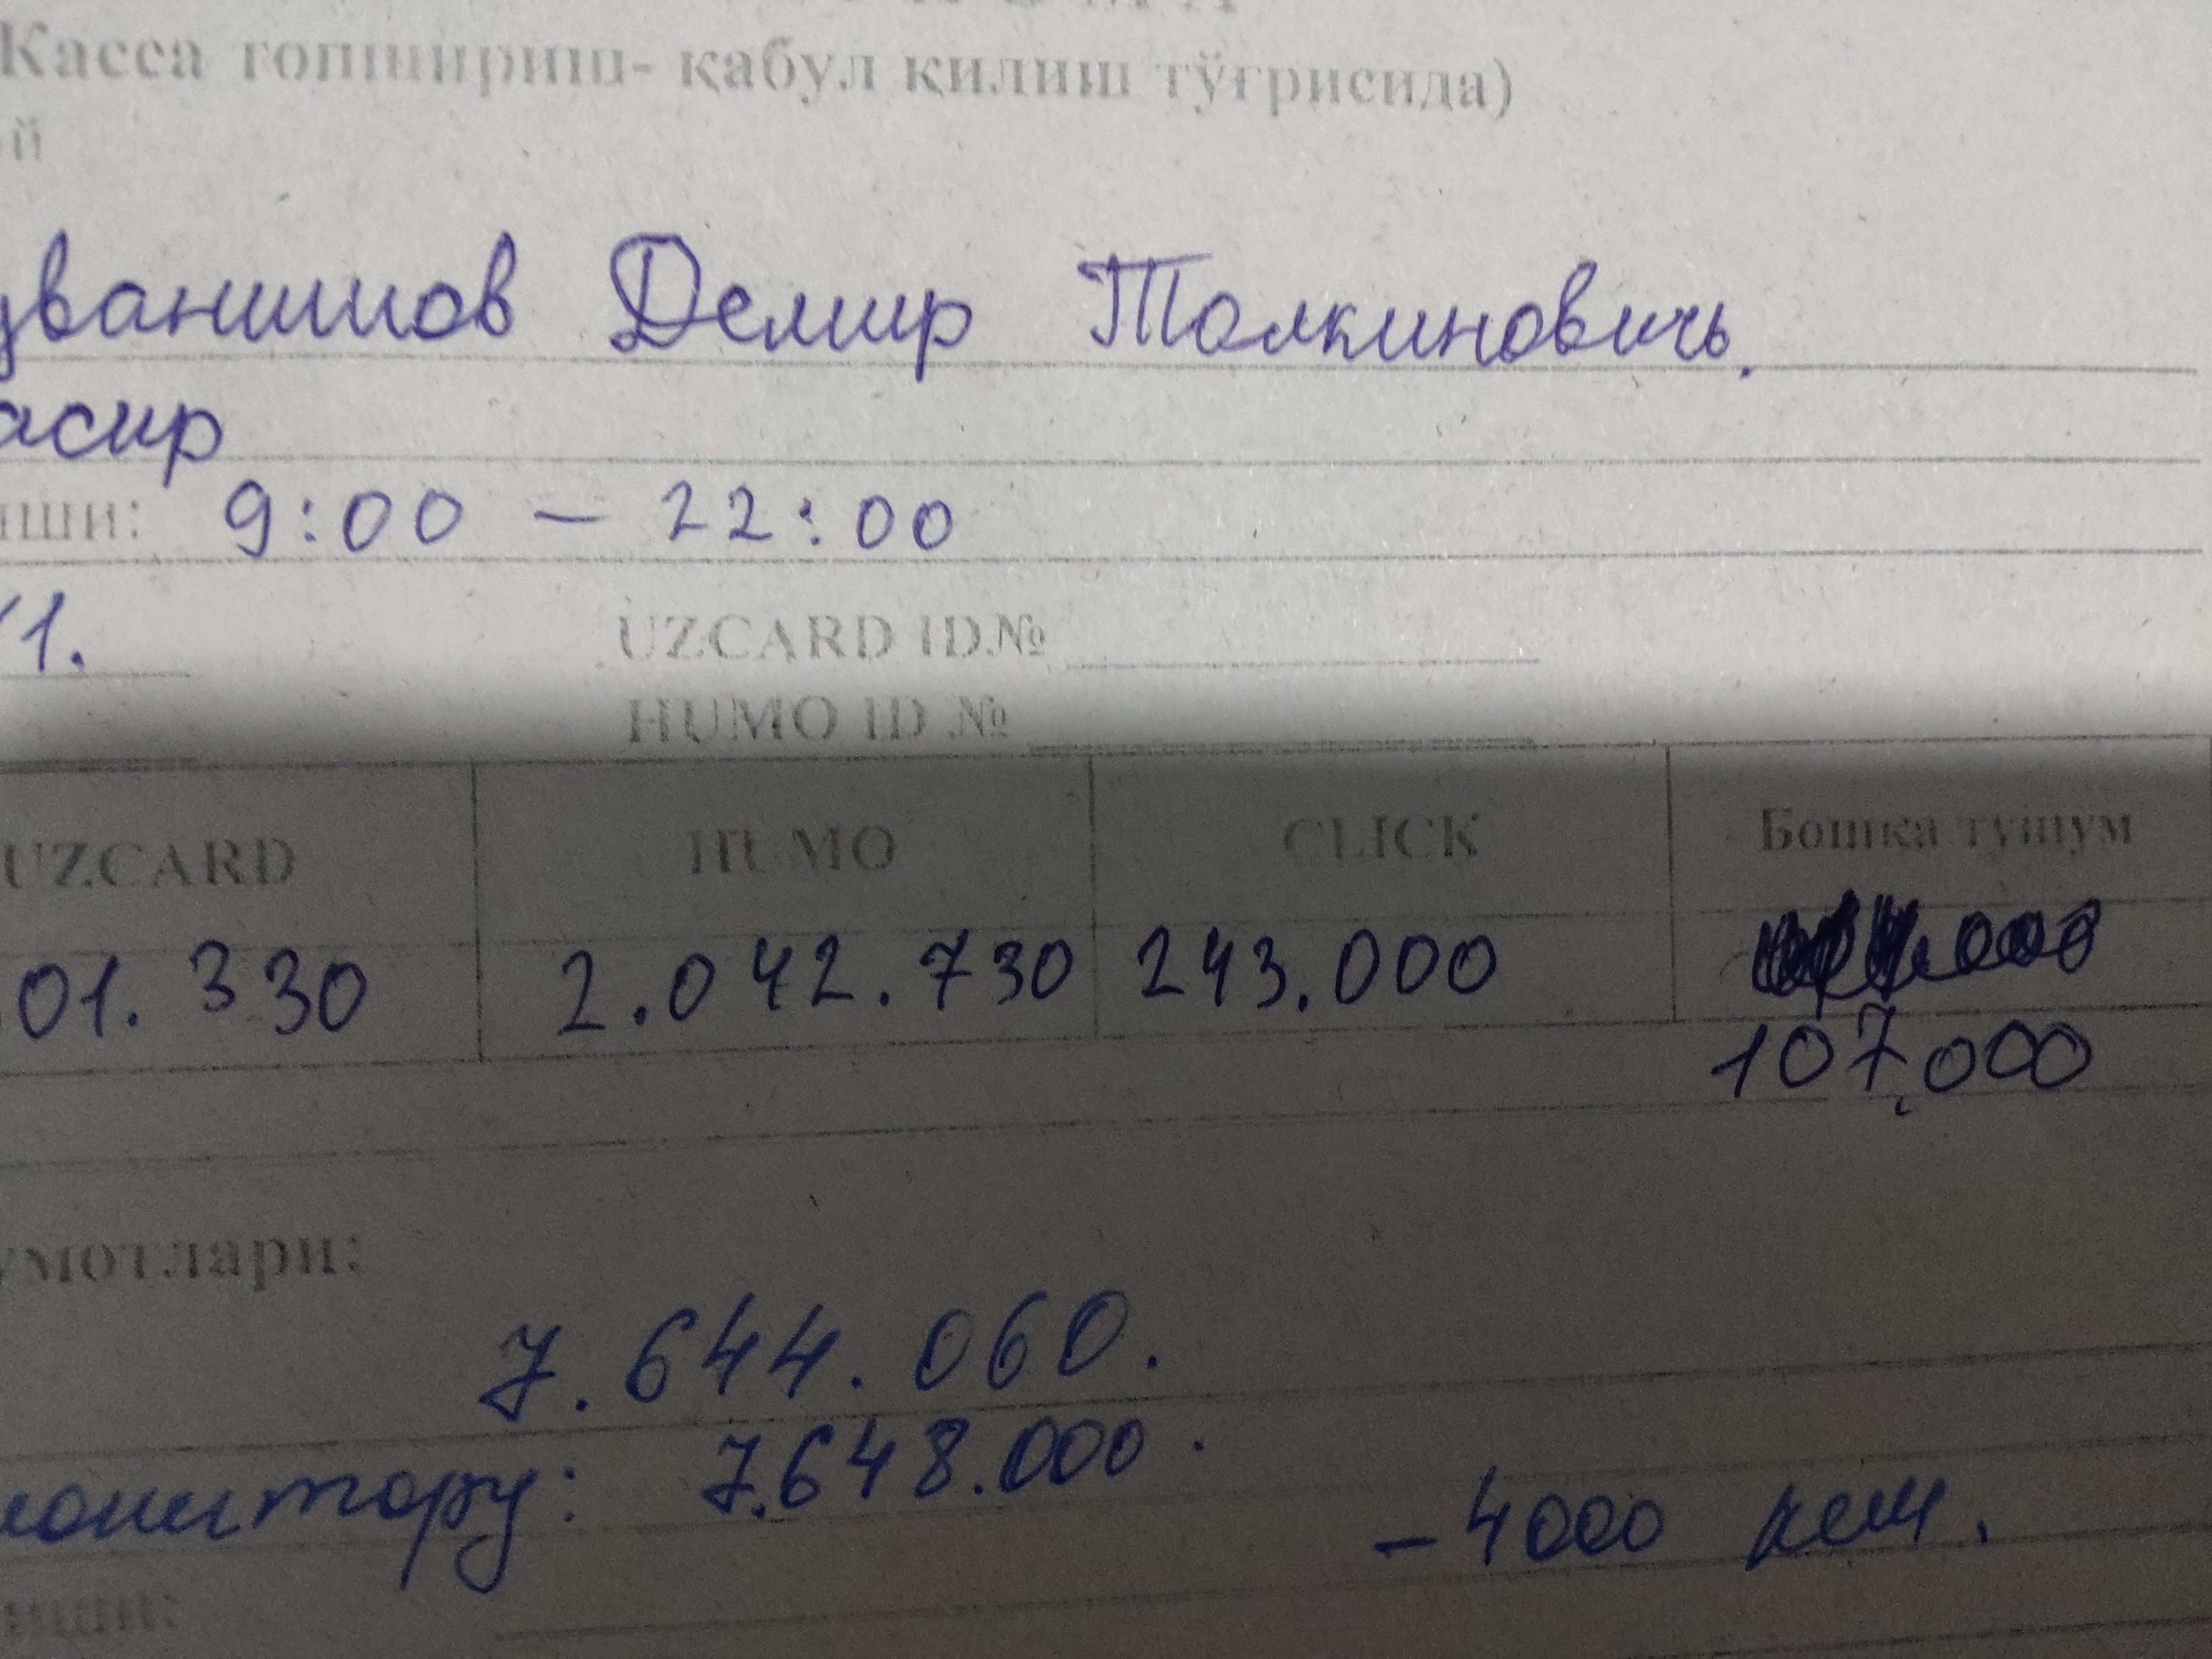 Касса топшириш- қабул қилиш тўғрисида)
ой
уваншиов Демир Толкиновичь.
асир
иши: 9:00 — 22:00
1.
UZCARD ID№
HUMO ID №
UZCARD HUMO CLICK Бошка тушум
01.330 2.042.730 243.000
107,000
умотлари:
7.644.060.
монитору: 7.648.000.
-4000 кам.
иши: